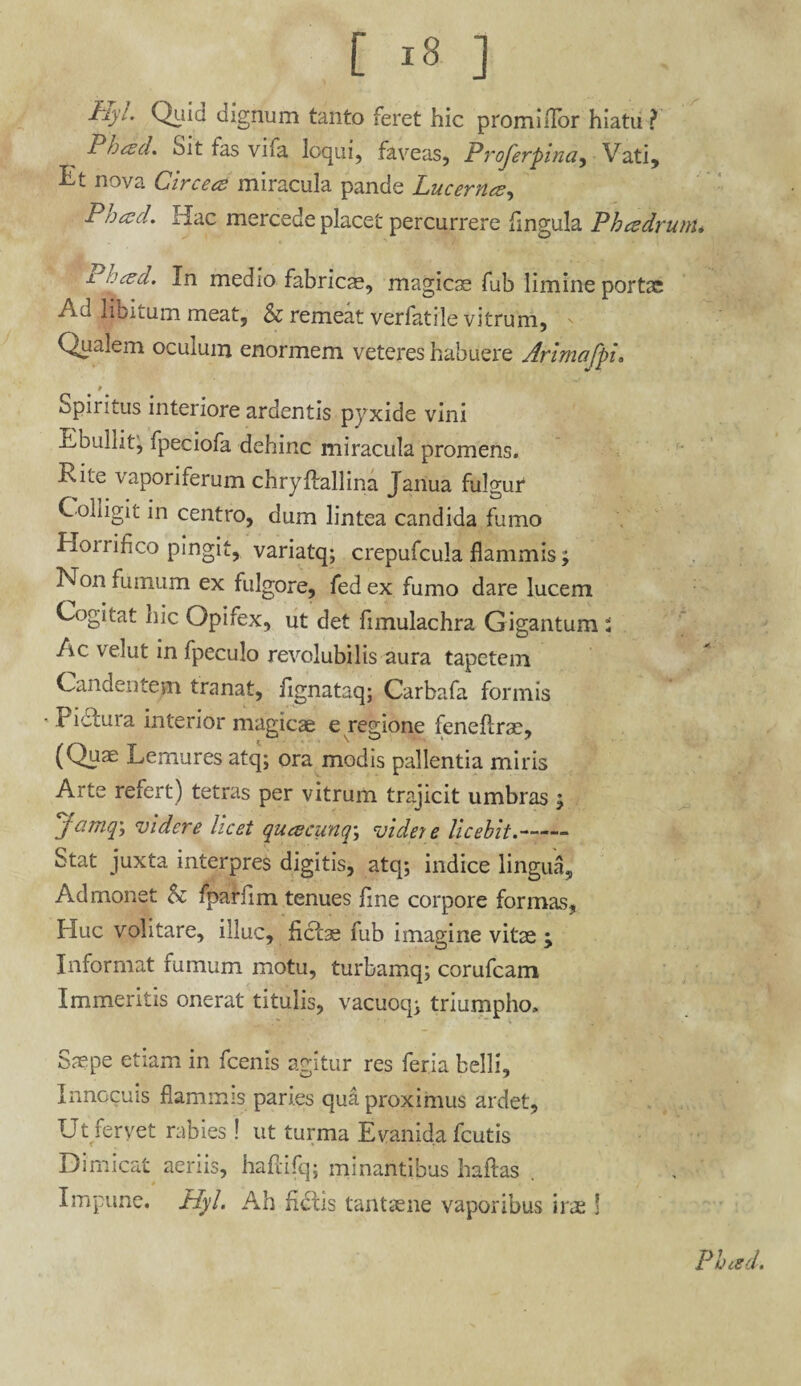 [ 18 ]
Hyl. Quid dignum tanto feret hic promiſſor hiatu?
Phæd. Sit fas viſa loqui, faveas, Proſerpina, Vati,
Et nova Circeæ miracula pande Lucernæ,
Phæd. Hac mercede placet percurrere ſingula Phædrum.
Phæd. In medio fabricæ, magicæ ſub limine portæ
Ad libitum meat, & remeat verſatile vitrum,
Qualem oculum enormem veteres habuere Arimaſpi.
Spiritus interiore ardentis pyxide vini
Ebullit, ſpecioſa dehinc miracula promens.
Rite vaporiferum chryſtallina Janua fulgur
Colligit in centro, dum lintea candida fumo
Horrifico pingit, variatq; crepuſcula flammis;
Non fumum ex fulgore, ſed ex fumo dare lucem
Cogitat hic Opifex, ut det ſimulachra Gigantum:
Ac velut in ſpeculo revolubilis aura tapetem
Candentem tranat, ſignataq; Carbaſa formis
Pictura interior magicæ e regione feneſtræ,
(Quæ Lemures atq; ora modis pallentia miris
Arte refert) tetras per vitrum trajicit umbras;
Jamq; videre licet quæcunq; videre licebit.——
Stat juxta interpres digitis, atq; indice linguâ,
Admonet & ſparſim tenues ſine corpore formas,
Huc volitare, illuc, fictæ ſub imagine vitæ;
Informat fumum motu, turbamq; coruſcam
Immeritis onerat titulis, vacuoq; triumpho.
Sæpe etiam in ſcenis agitur res ſeria belli,
Innocuis flammis paries quâ proximus ardet,
Ut fervet rabies! ut turma Evanida ſcutis
Dimicat aeriis, haſtiſq; minantibus haſtas
Impune. Hyl. Ah fictis tantæne vaporibus iræ!
Phæd.